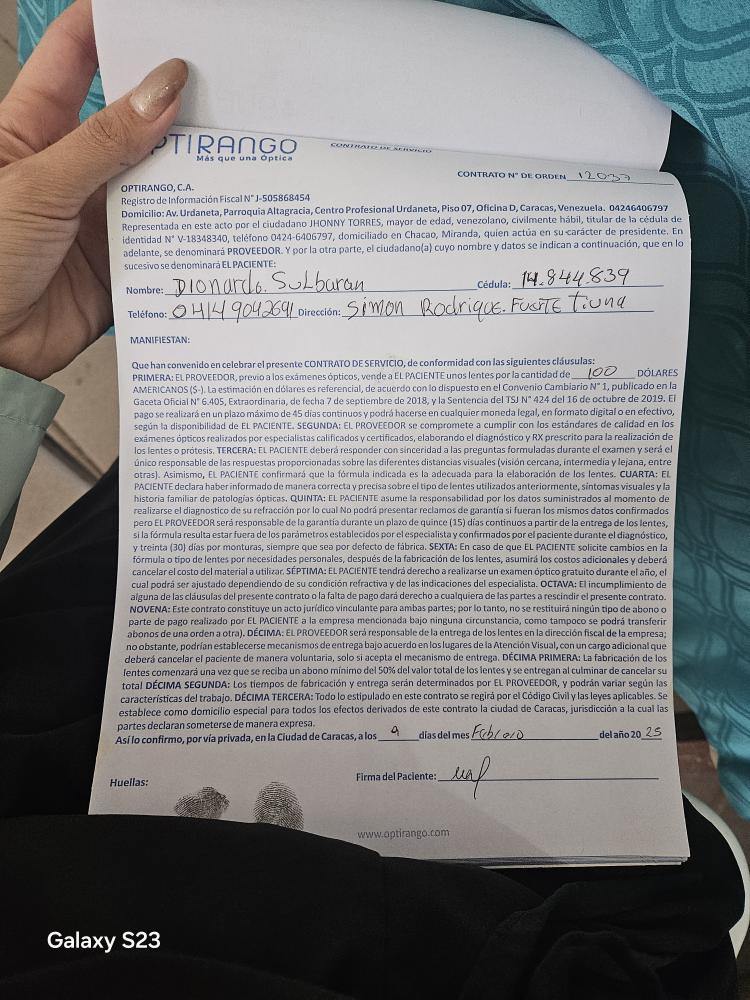 PTIRANGO
Más que una Óptica
CONTRATO DE SERVICIO
CONTRATO N° DE ORDEN 12037
OPTIRANGO, C.A.
Registro de Información Fiscal N° J-505868454
Domicilio: Av. Urdaneta, Parroquia Altagracia, Centro Profesional Urdaneta, Piso 07, Oficina D, Caracas, Venezuela. 04246406797
Representada en este acto por el ciudadano JHONNY TORRES, mayor de edad, venezolano, civilmente hábil, titular de la cédula de
identidad N° V-18348340, teléfono 0424-6406797, domiciliado en Chacao, Miranda, quien actúa en su carácter de presidente. En
adelante, se denominará PROVEEDOR. Y por la otra parte, el ciudadano(a) cuyo nombre y datos se indican a continuación, que en lo
sucesivo se denominará EL PACIENTE:
Nombre: Dionardo. Sulbaran Cédula: 14.844.839
Teléfono: 04149042691 Dirección: Simon Rodrique. Fuerte Tiuna
MANIFIESTAN:
Que han convenido en celebrar el presente CONTRATO DE SERVICIO, de conformidad con las siguientes cláusulas:
PRIMERA: EL PROVEEDOR, previo a los exámenes ópticos, vende a EL PACIENTE unos lentes por la cantidad de 100 DÓLARES
AMERICANOS ($-). La estimación en dólares es referencial, de acuerdo con lo dispuesto en el Convenio Cambiario N° 1, publicado en la
Gaceta Oficial N° 6.405, Extraordinaria, de fecha 7 de septiembre de 2018, y la Sentencia del TSJ N° 424 del 16 de octubre de 2019. El
pago se realizará en un plazo máximo de 45 días continuos y podrá hacerse en cualquier moneda legal, en formato digital o en efectivo,
según la disponibilidad de EL PACIENTE. SEGUNDA: EL PROVEEDOR se compromete a cumplir con los estándares de calidad en los
exámenes ópticos realizados por especialistas calificados y certificados, elaborando el diagnóstico y RX prescrito para la realización de
los lentes o prótesis. TERCERA: EL PACIENTE deberá responder con sinceridad a las preguntas formuladas durante el examen y será el
único responsable de las respuestas proporcionadas sobre las diferentes distancias visuales (visión cercana, intermedia y lejana, entre
otras). Asimismo, EL PACIENTE confirmará que la fórmula indicada es la adecuada para la elaboración de los lentes. CUARTA: EL
PACIENTE declara haber informado de manera correcta y precisa sobre el tipo de lentes utilizados anteriormente, síntomas visuales y la
historia familiar de patologías ópticas. QUINTA: EL PACIENTE asume la responsabilidad por los datos suministrados al momento de
realizarse el diagnostico de su refracción por lo cual No podrá presentar reclamos de garantía si fueran los mismos datos confirmados
pero EL PROVEEDOR será responsable de la garantía durante un plazo de quince (15) días continuos a partir de la entrega de los lentes,
si la fórmula resulta estar fuera de los parámetros establecidos por el especialista y confirmados por el paciente durante el diagnóstico,
y treinta (30) días por monturas, siempre que sea por defecto de fábrica. SEXTA: En caso de que EL PACIENTE solicite cambios en la
fórmula o tipo de lentes por necesidades personales, después de la fabricación de los lentes, asumirá los costos adicionales y deberá
cancelar el costo del material a utilizar. SÉPTIMA: EL PACIENTE tendrá derecho a realizarse un examen óptico gratuito durante el año, el
cual podrá ser ajustado dependiendo de su condición refractiva y de las indicaciones del especialista. OCTAVA: El incumplimiento de
alguna de las cláusulas del presente contrato o la falta de pago dará derecho a cualquiera de las partes a rescindir el presente contrato.
NOVENA: Este contrato constituye un acto jurídico vinculante para ambas partes; por lo tanto, no se restituirá ningún tipo de abono o
parte de pago realizado por EL PACIENTE a la empresa mencionada bajo ninguna circunstancia, como tampoco se podrá transferir
abonos de una orden a otra). DÉCIMA: EL PROVEEDOR será responsable de la entrega de los lentes en la dirección fiscal de la empresa;
no obstante, podrían establecerse mecanismos de entrega bajo acuerdo en los lugares de la Atención Visual, con un cargo adicional que
deberá cancelar el paciente de manera voluntaria, solo si acepta el mecanismo de entrega. DÉCIMA PRIMERA: La fabricación de los
lentes comenzará una vez que se reciba un abono mínimo del 50% del valor total de los lentes y se entregan al culminar de cancelar su
total DÉCIMA SEGUNDA: Los tiempos de fabricación y entrega serán determinados por EL PROVEEDOR, y podrán variar según las
características del trabajo. DÉCIMA TERCERA: Todo lo estipulado en este contrato se regirá por el Código Civil y las leyes aplicables. Se
establece como domicilio especial para todos los efectos derivados de este contrato la ciudad de Caracas, jurisdicción a la cual las
partes declaran someterse de manera expresa.
Así lo confirmo, por vía privada, en la Ciudad de Caracas, a los 9 días del mes Febrero del año 20 25
Huellas:
Firma del Paciente:
www.optirango.com
Galaxy S23